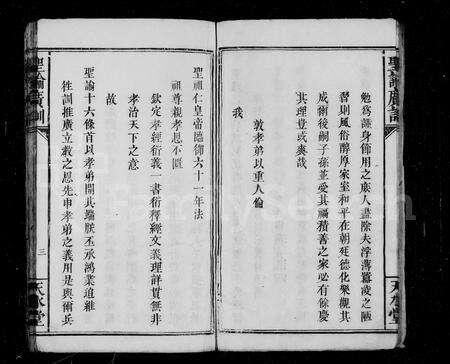 聖諭廣訓
勉為謹身節用之庶人盡除夫浮薄囂凌之陋
習則風俗醇厚家室和平在朝廷德化樂觀其
成爾後嗣子孫並受其福積善之家必有餘慶
其理豈或爽哉
敦孝弟以重人倫
我
天水堂
聖祖仁皇帝臨御六十一年法
祖尊親孝思不匱
欽定孝經衍義一書衍釋經文義理詳貫無非
孝治天下之意
故
聖諭十六條首以孝弟開其端朕丕承鴻業追維
往訓推廣立教之思先申孝弟之義用是與爾兵
聖諭廣訓
三
天水堂
FamilySearch